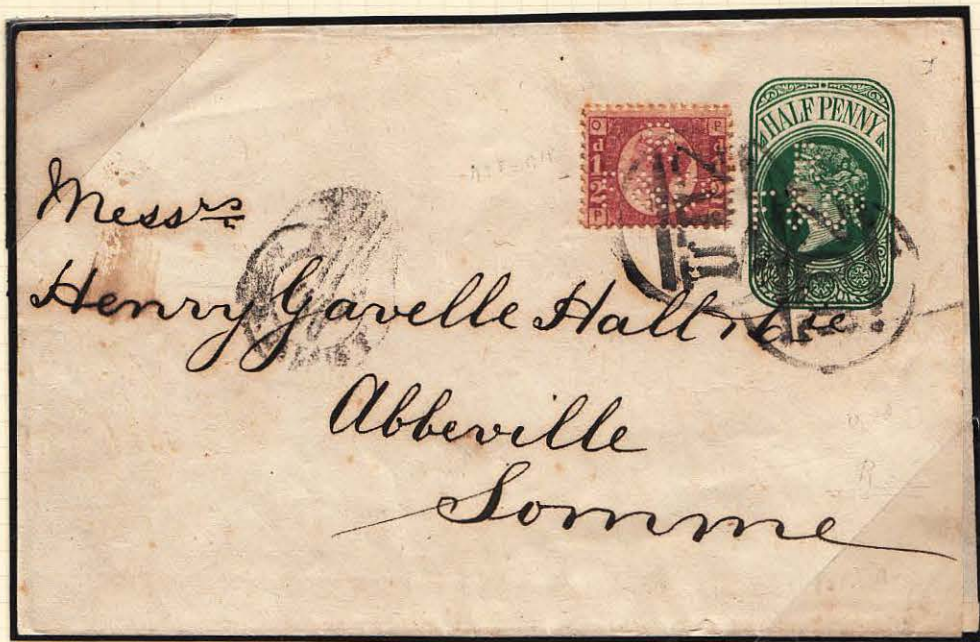 HALF PENNY
O P
d d
1 2
P
Messrs
Henry Gavelle Halt & Cie
Abbeville
Somme